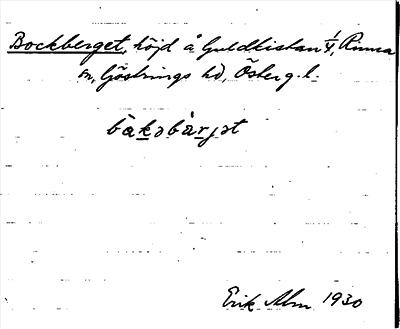 Bockberget, höjd å Guldkistan 1/4, Rinna
sn, Göstrings hd, Österg. l.
bàkəbàrjət
Erik Alm 1930